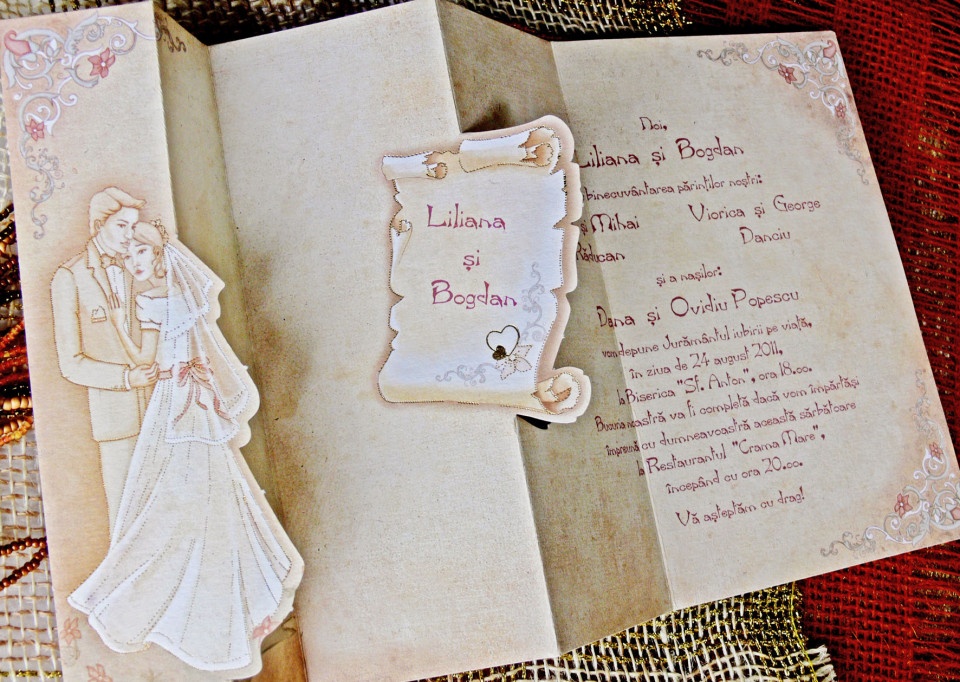 Liliana
și
Bogdan
Noi,
Liliana și Bogdan
binecuvântarea părinților noștri:
și Mihai Viorica și George
Răducan Danciu
și a nașilor:
Dana și Ovidiu Popescu
vom depune Jurământul iubirii pe viață,
în ziua de 24 august 2011,
la Biserica "Sf. Anton", ora 18.00.
Bucuria noastră va fi completă dacă vom împărtăși
împreună cu dumneavoastră această sărbătoare
la Restaurantul "Crama Mare",
începând cu ora 20.00.
Vă așteptăm cu drag!